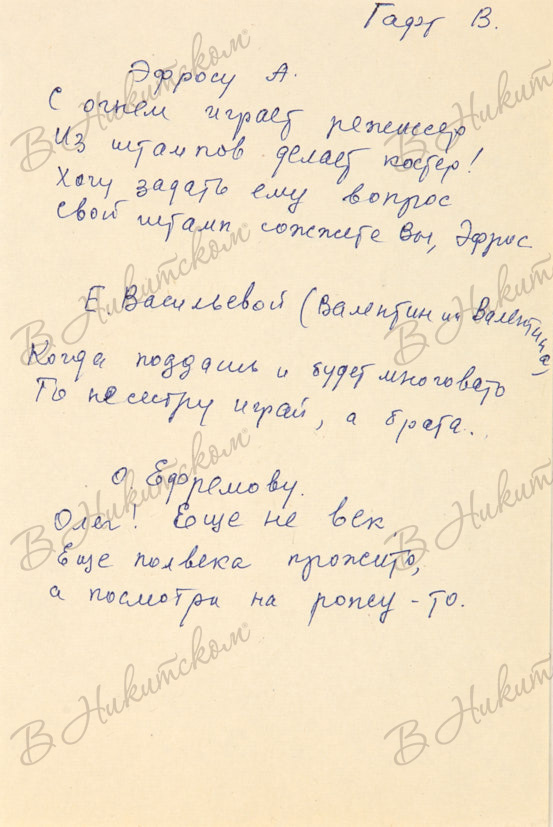 Гафт В.
Эфросу А.
С огнем играет режиссер
Из штампов делает костер!
Хочу задать ему вопрос
Свой штамп сожжете Вы, Эфрос
Е. Васильевой (Валентин и Валентина)
Когда поддашь и будет многовато
То не сестру играй, а брата.
О. Ефремову.
Олег! Еще не век.
Еще полвека прожито,
а посмотри на рожу-то.
В Никитском
В Никитском
В Никитском
В Никитском
В Никитском
В Никитском
В Никитском
В Никитском